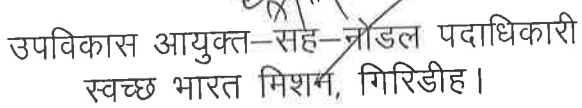 उपविकास आयुक्त–सह–नोडल पदाधिकारी
स्वच्छ भारत मिशन, गिरिडीह।